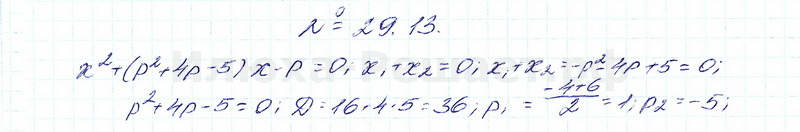 № 29.13.
x²+(p²+4p-5)x-p=0; x₁+x₂=0; x₁+x₂=-p²4p+5=0;
p²+4p-5=0; D=16+4·5=36; p₁ = (-4+6)/2 = 1; p₂=-5;